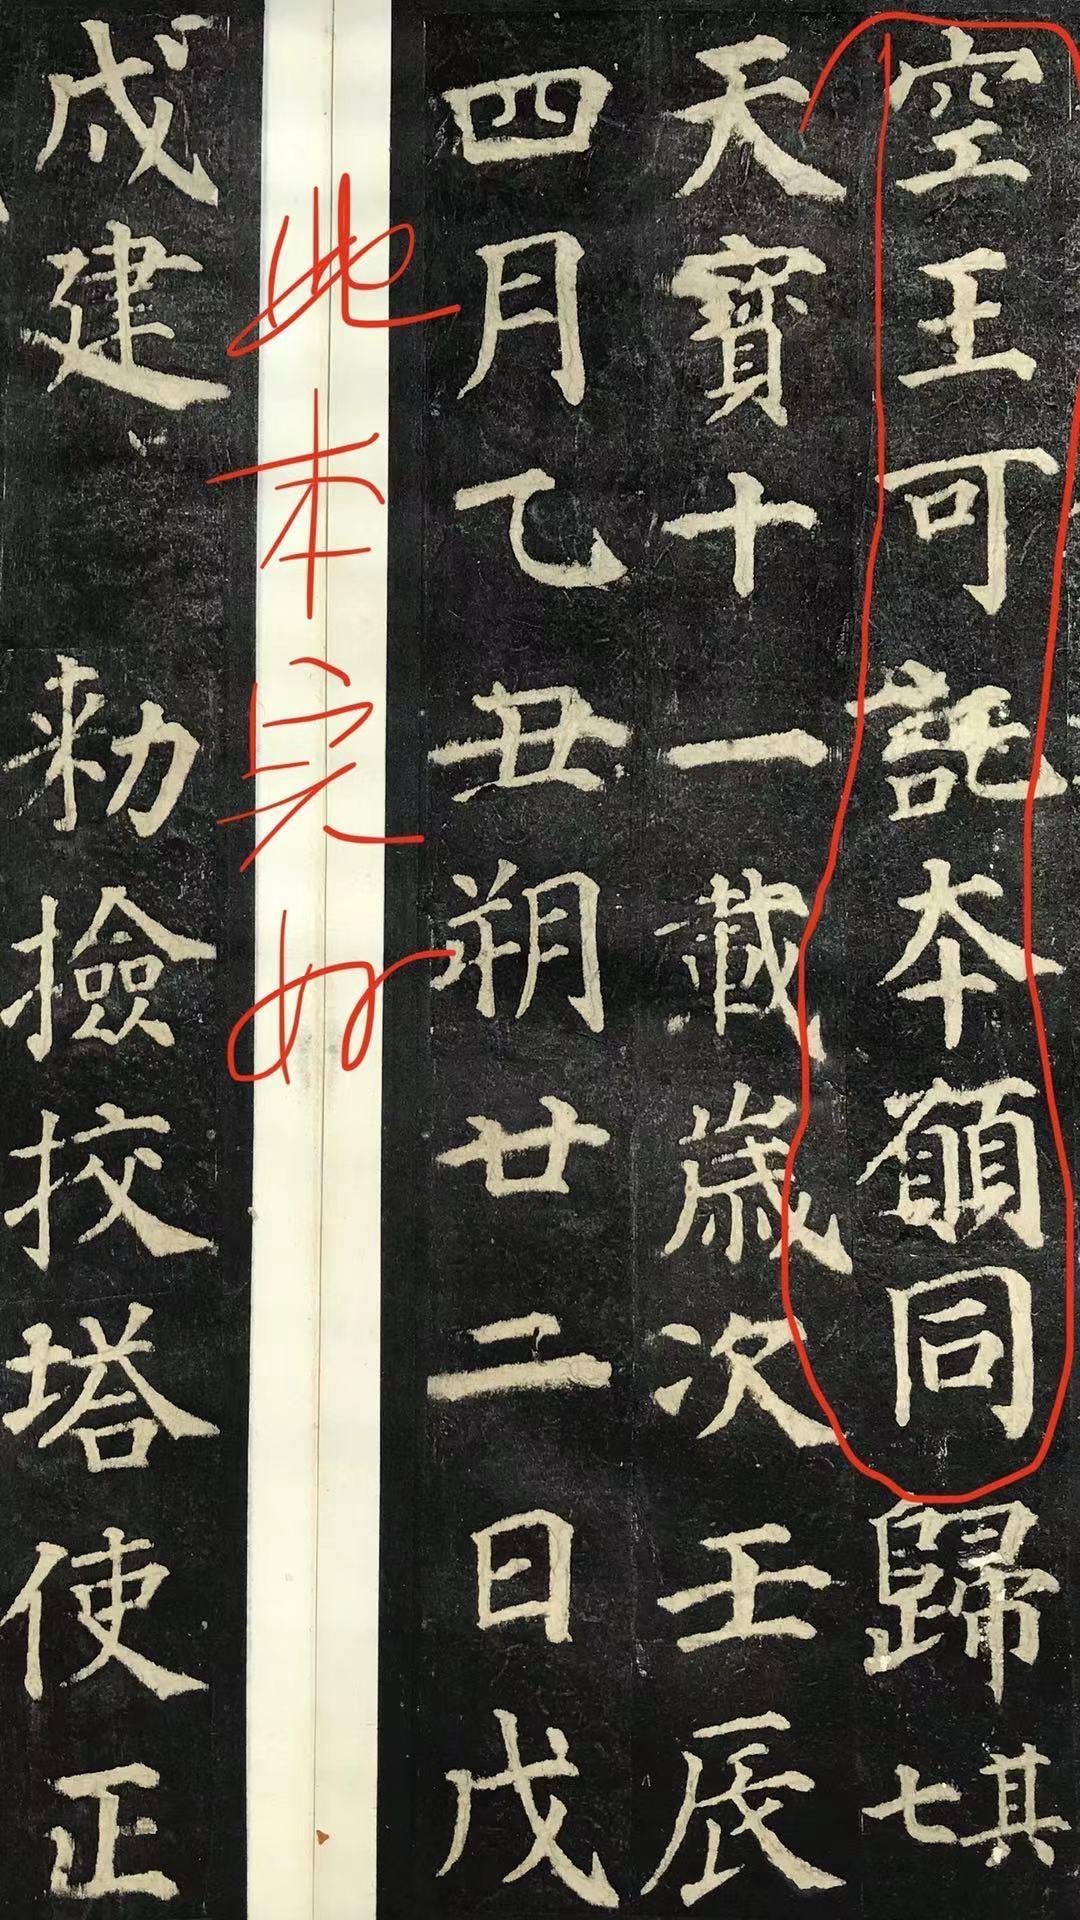 空王可託本願同歸其七
天寶十一載歲次壬辰
四月乙丑朔廿二日戊
戌建 勑檢挍塔使正
此本完好